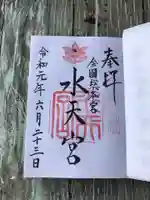 奉拝
全国総本宮
水天宮
令和元年六月二十三日